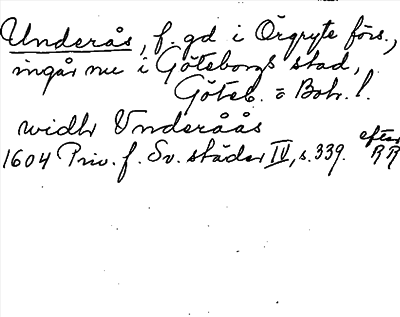 Underås, f. gd i Örgryte förs.,
ingår nu i Göteborgs stad,
Göteb. o Boh. l.
widh Vnderåås
1604 Priv. f. Sv. städer IV, s. 339. efter RR